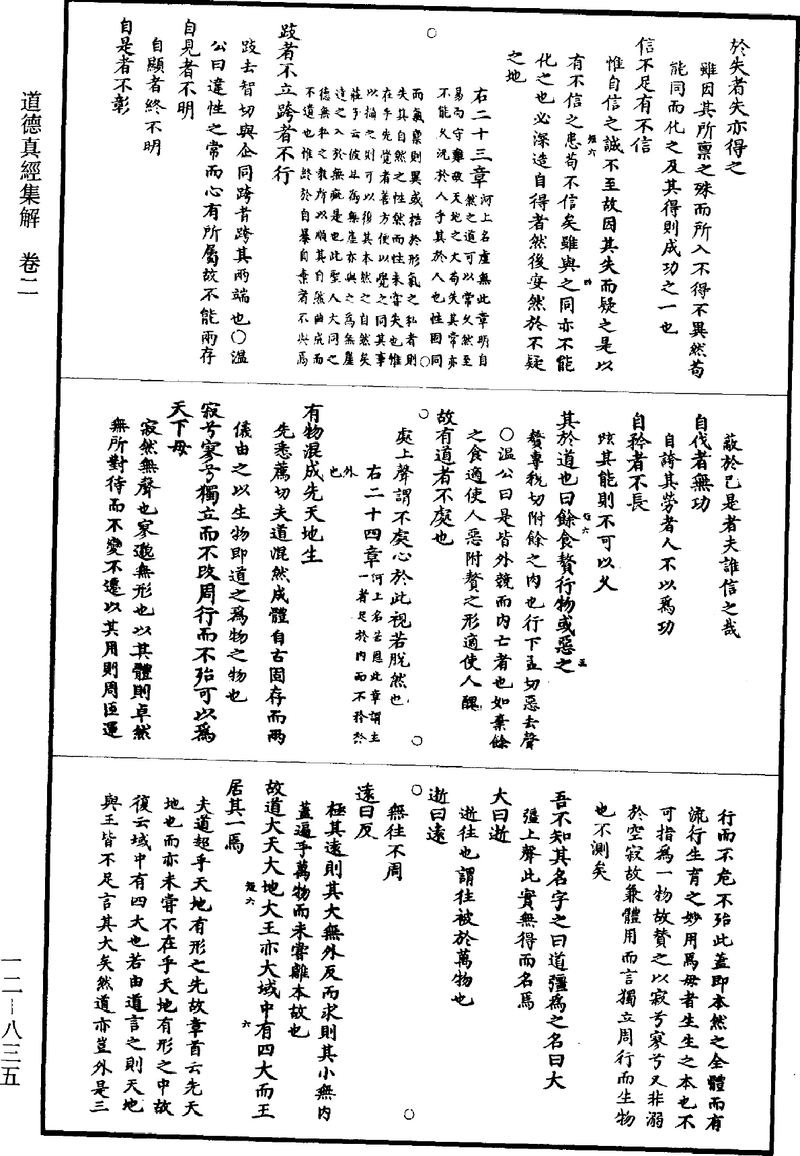 於失者失亦得之
雖因其所稟之殊而所入不得不異然苟
能同而化之及其得則成功之一也
信不足有不信
惟自信之誠不至故因其失而疑之是以
有不信之患苟不信矣雖與之同亦不能
化之也必深造自得者然後安然於不疑
之地
右二十三章河上名虛無此章明自
然之道可以常久然至
易而守難敬天地之大苟失其常亦
不能久況於人乎其於人也性固同
而氣稟則異或梏於形氣之私者則
失其自然之性然而性未嘗失也惟
在乎先覺者善方便以覺之同其事
以揣之則可以復其本然之自然矣
莊子云彼且為無崖亦與之為無崖
達之入於無疵是也此聖人大同之
德無私之教所以順其自然曲成而
不遺也惟於自暴自棄者不與焉
跂者不立跨者不行
跂去智切與企同跨昔跨其兩端也○溫
公曰違性之常而心有所屬故不能兩存
自見者不明
自顯者終不明
自是者不彰
蔽於己是者夫誰信之哉
自伐者無功
自誇其勞者人不以為功
自矜者不長
眩其能則不可以久
其於道也曰餘食贅行物或惡之
贅專稅切附餘之肉也行下孟切惡去聲
○溫公曰是皆外競而內亡者也如棄餘
之食適使人惡附贅之形適使人醜
故有道者不處也
處上聲謂不處心於此視若脫然也
右二十四章河上名苦恩此章謂主
一者足於內而不矜於
外也
有物混成先天地生
先悉薦切夫道混然成體自古固存而兩
儀由之以生物即道之為物之物也
寂兮寥兮獨立而不改周行而不殆可以為
天下母
寂然無聲也寥邈無形也以其體則卓然
無所對待而不變不遷以其用則周匝運
行而不危不殆此蓋即本然之全體而有
流行生育之妙用焉母者生生之本也不
可指為一物故贊之以寂兮寥兮又非溺
於空寂故兼體用而言獨立周行而生物
也不測矣
吾不知其名字之曰道彊為之名曰大
彊上聲此實無得而名焉
大曰逝
逝往也謂往被於萬物也
逝曰遠
無往不周
遠曰反
極其遠則其大無外反而求則其小無內
蓋遍乎萬物而未嘗離本故也
故道大天大地大王亦大域中有四大而王
居其一焉
夫道超乎天地有形之先故章首云先天
地也而亦未嘗不在乎天地有形之中故
復云域中有四大也若由道言之則天地
與王皆不足言其大矣然道亦豈外是三
道德真經集解 卷二
一二—八三五